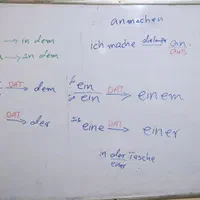 anmachen
→ in dem
ich mache an
aus
→ in dem
DAT → dem
ein
ein DAT → einem
DAT → der
eine DAT → einer
in der Tasche
einer